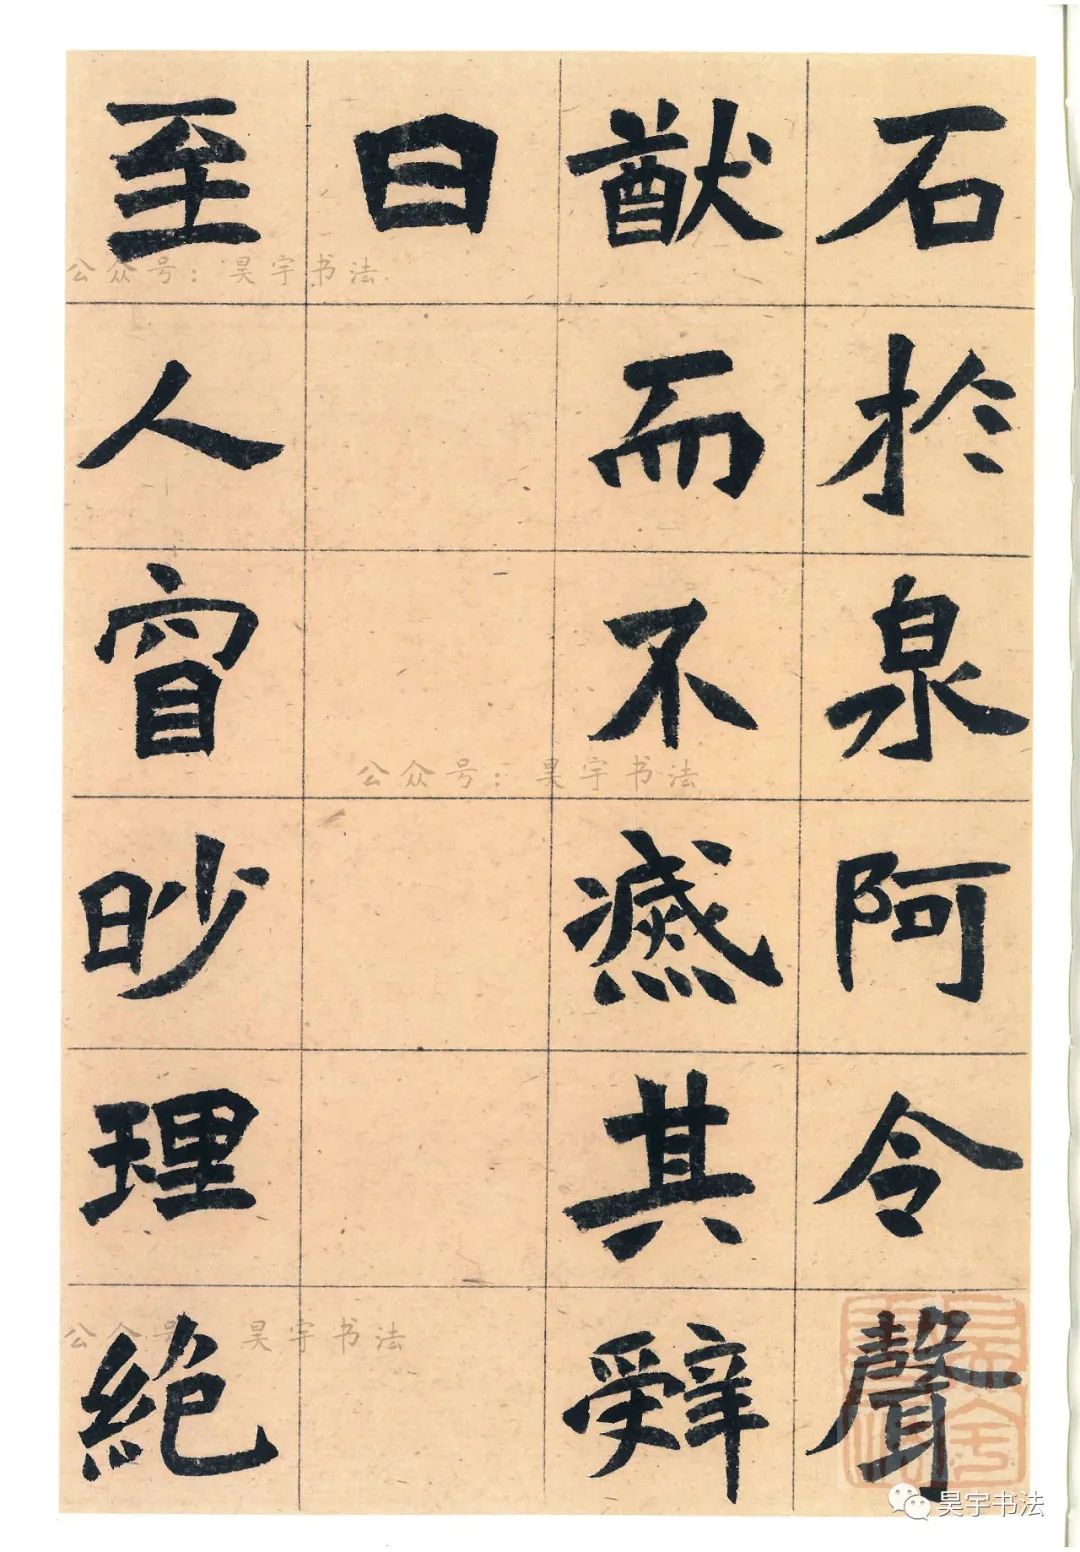 石於泉阿令聲
猷而不㓕其辝
曰
至人窅眇理絶
公众号：昊宇书法
公众号：昊宇书法
公众号 昊宇书法
昊宇书法